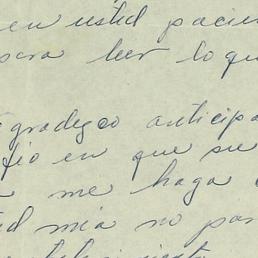 en usted pacien
para leer lo qu
gradezco anticipa
fío en que su
me haga
mía no par